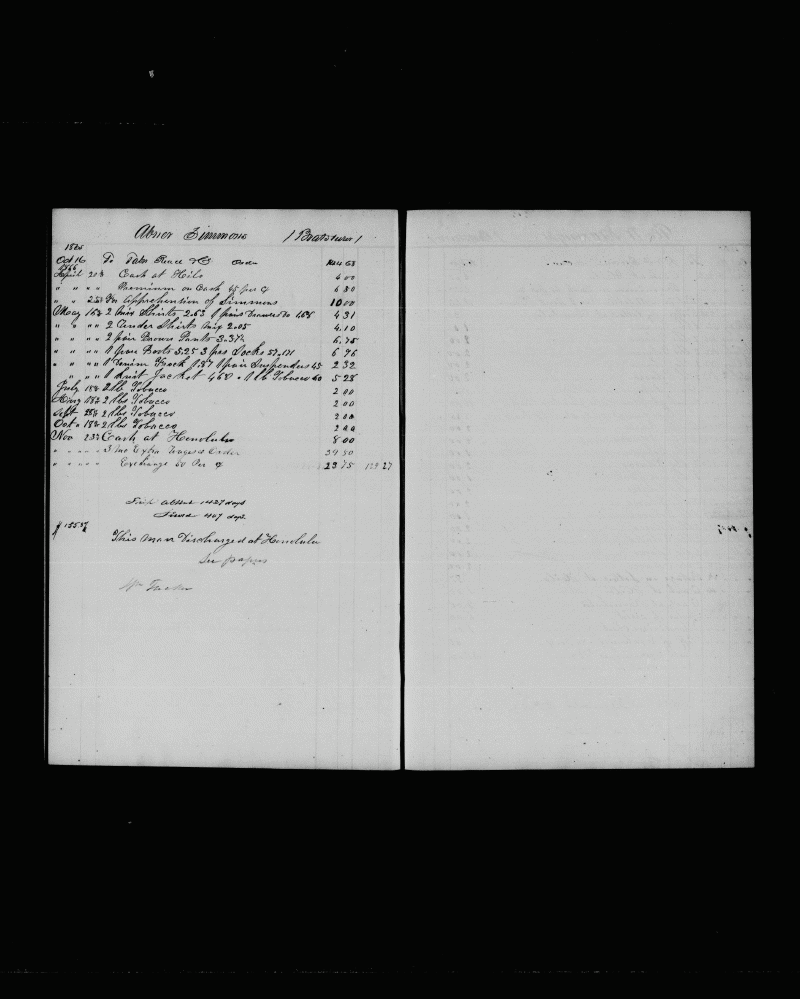 Abner Simmons / Boatsteerer /
1865
Oct 16 To Taber Order
1866
April 20th Cash at Hilo 4 00
" " " " Premium on Cash
" " 25th For apprehension of Simmons 10 00
May 16th 2 Shirts 2.63 1 pair Drawers 4 31
" " " " 2 Under Shirts 2.05 4.10
" " " " 2 pair Brown Pants 3.37½ 6.75
" " " " 1 pair Boots 5.25 3 prs Socks 6 96
" " " " 1 Denim Frock 1.87 1 pair Suspenders 45 2 32
" " " " 1 Knit Jacket 4 68 1 lb Tobacco 60 5 28
July 18th 2 lb Tobacco 2 00
Aug 18th 2 lbs Tobacco 2 00
Sept 2 lbs Tobacco 2 00
Oct " 18th 2 lbs Tobacco 2 00
Nov 23d Cash at Honolulu 8 00
" " " " 3 mo Extra Wages Order
" " " " Exchange Per 23 75
Ship absent 1427 days
Simmons 407 days
This man Discharged at Honolulu
See papers